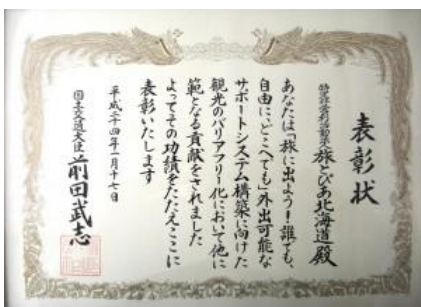 表彰状
特定非営利活動法人 旅とぴあ北海道殿
あなたは「旅に出よう！誰でも、
自由に、どこへでも」外出可能な
サポートシステム構築に向けた
観光のバリアフリー化において他に
範となる貢献をされました
よってその功績をたたえここに
表彰いたします
平成二十四年一月十七日
国土交通大臣 前田武志